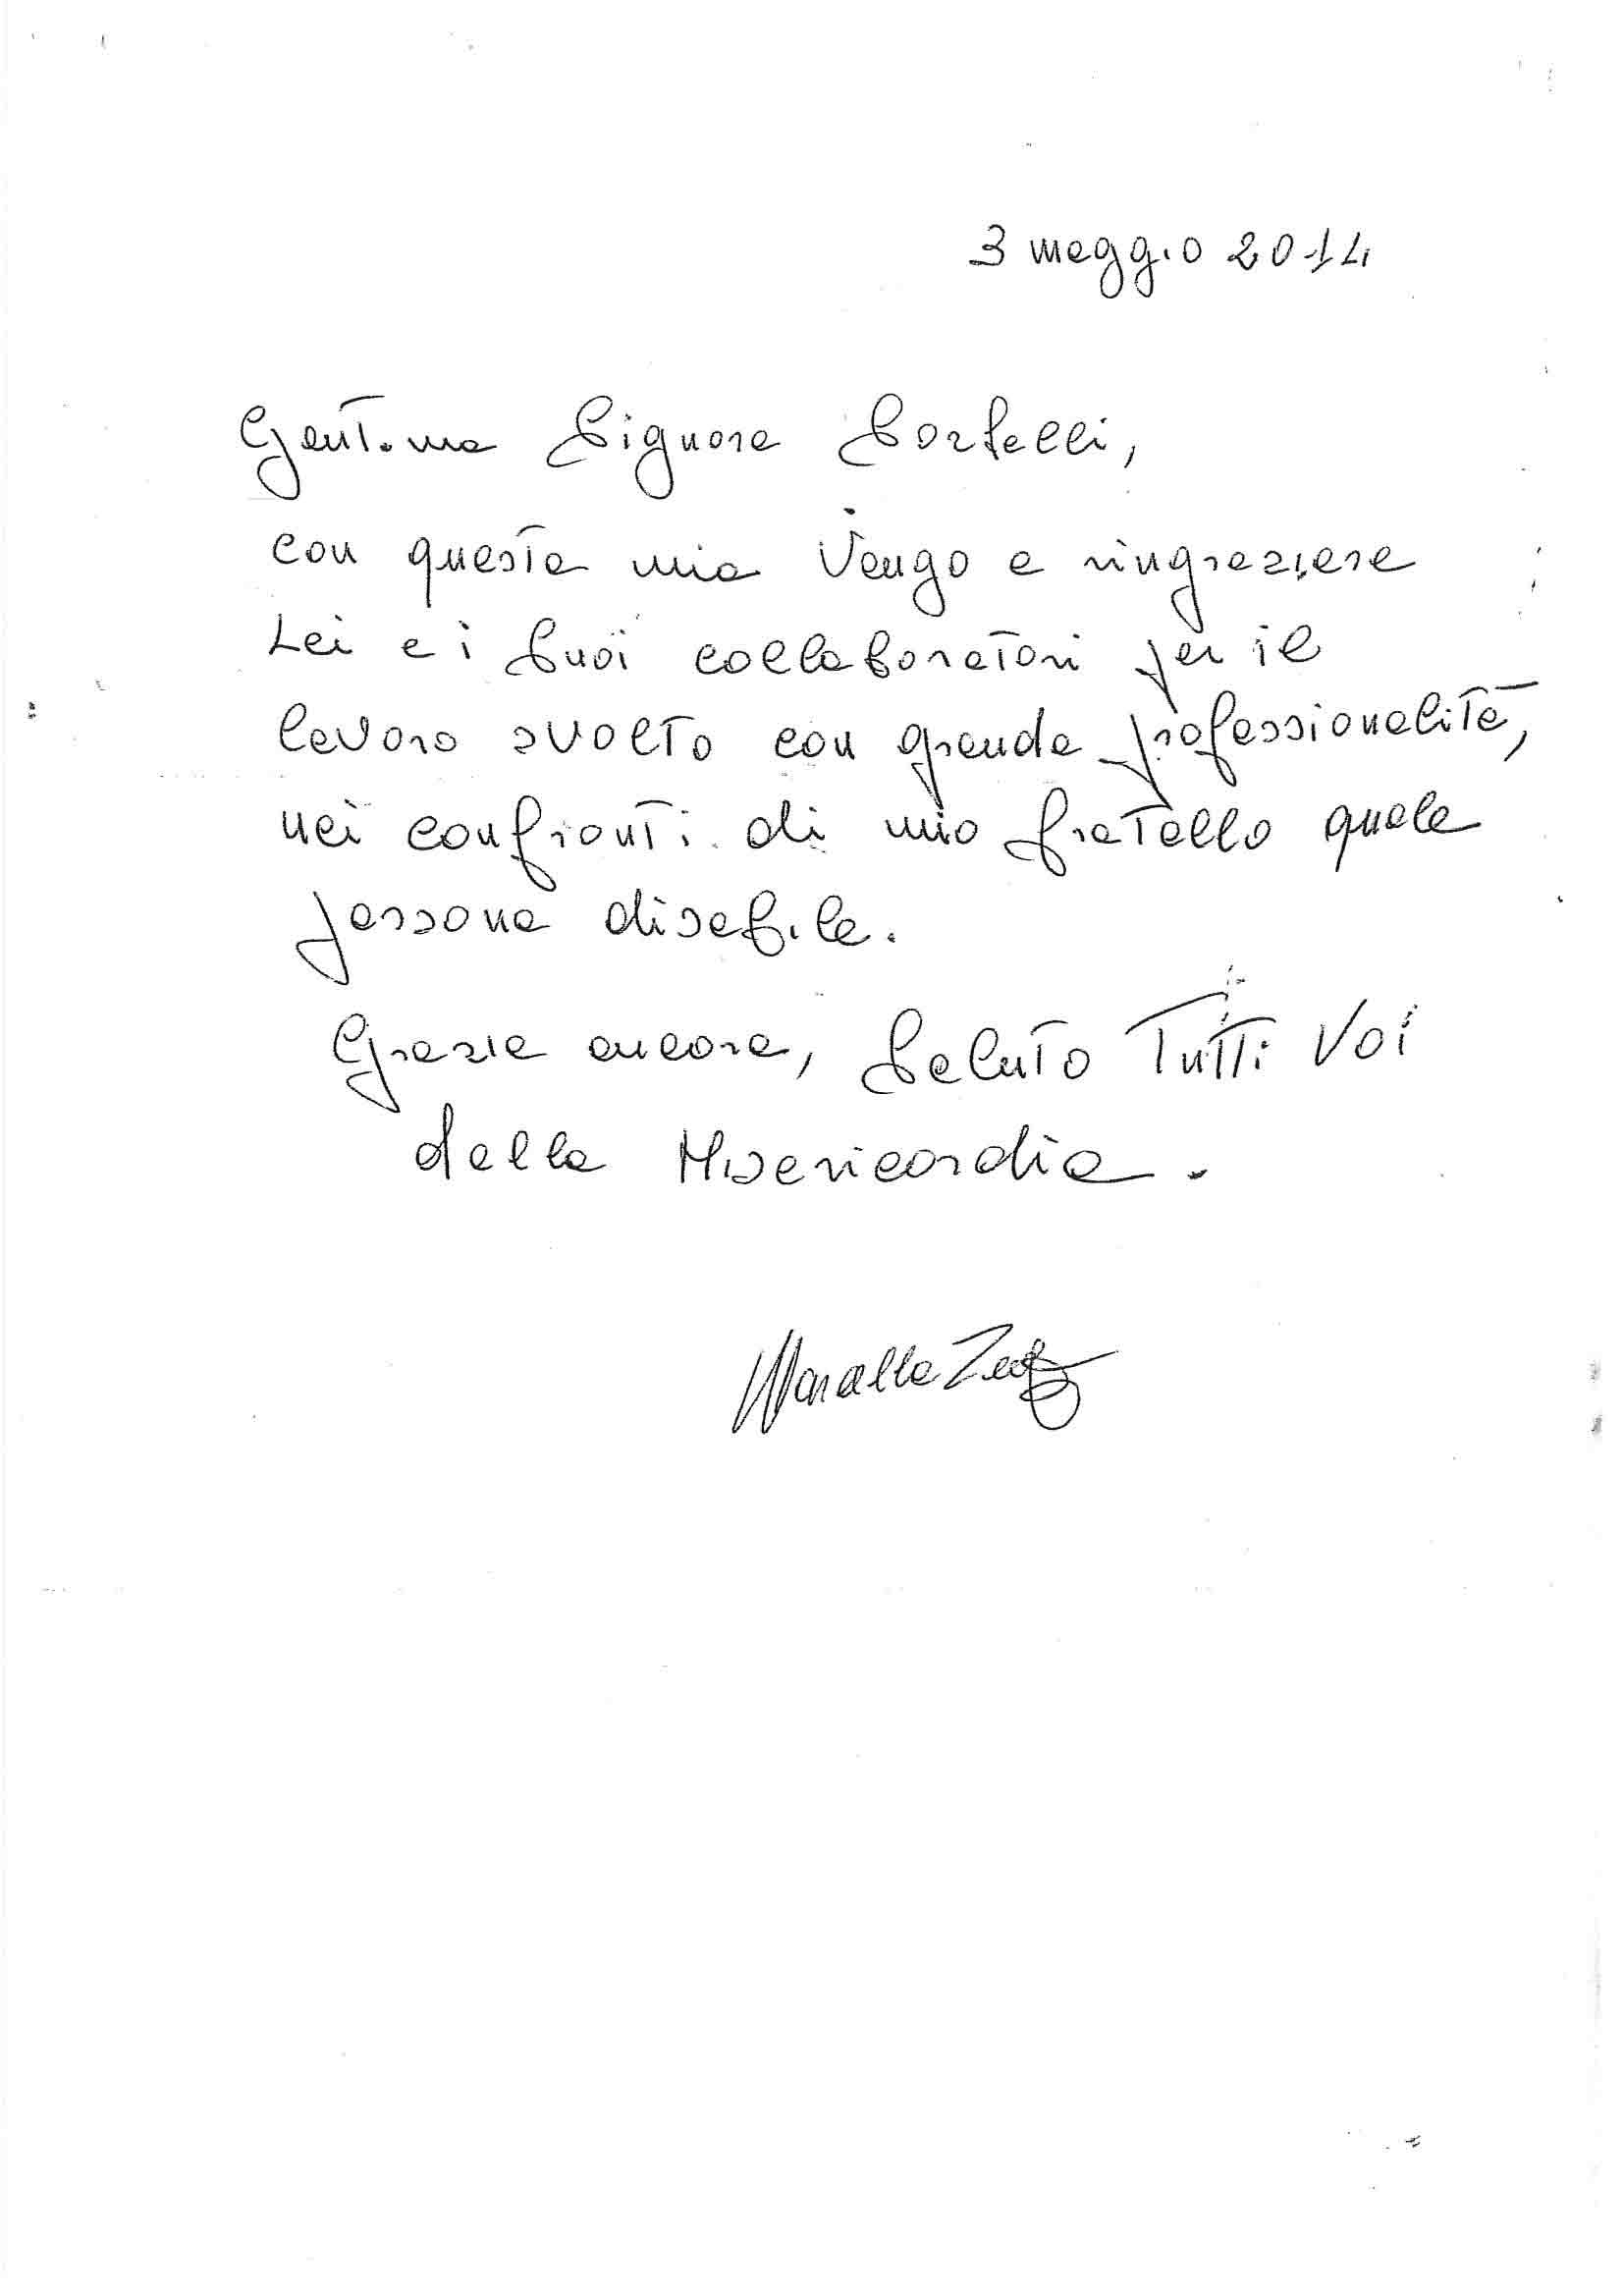 3 maggio 2014
Gent.ma Signora Sortelli,
con questa mia vengo a ringraziare
Lei e i Suoi collaboratori per il
lavoro svolto con grande professionalità,
nei confronti di mio fratello quale
persona disabile.
Grazie ancora, Saluto Tutti Voi
della Misericordia.
Marella